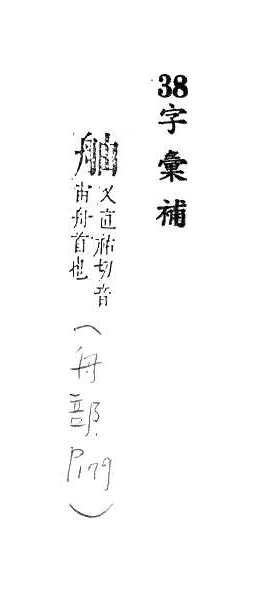 38字彙補
舳又直祐切音
宙舟首也
(舟部.
P179)